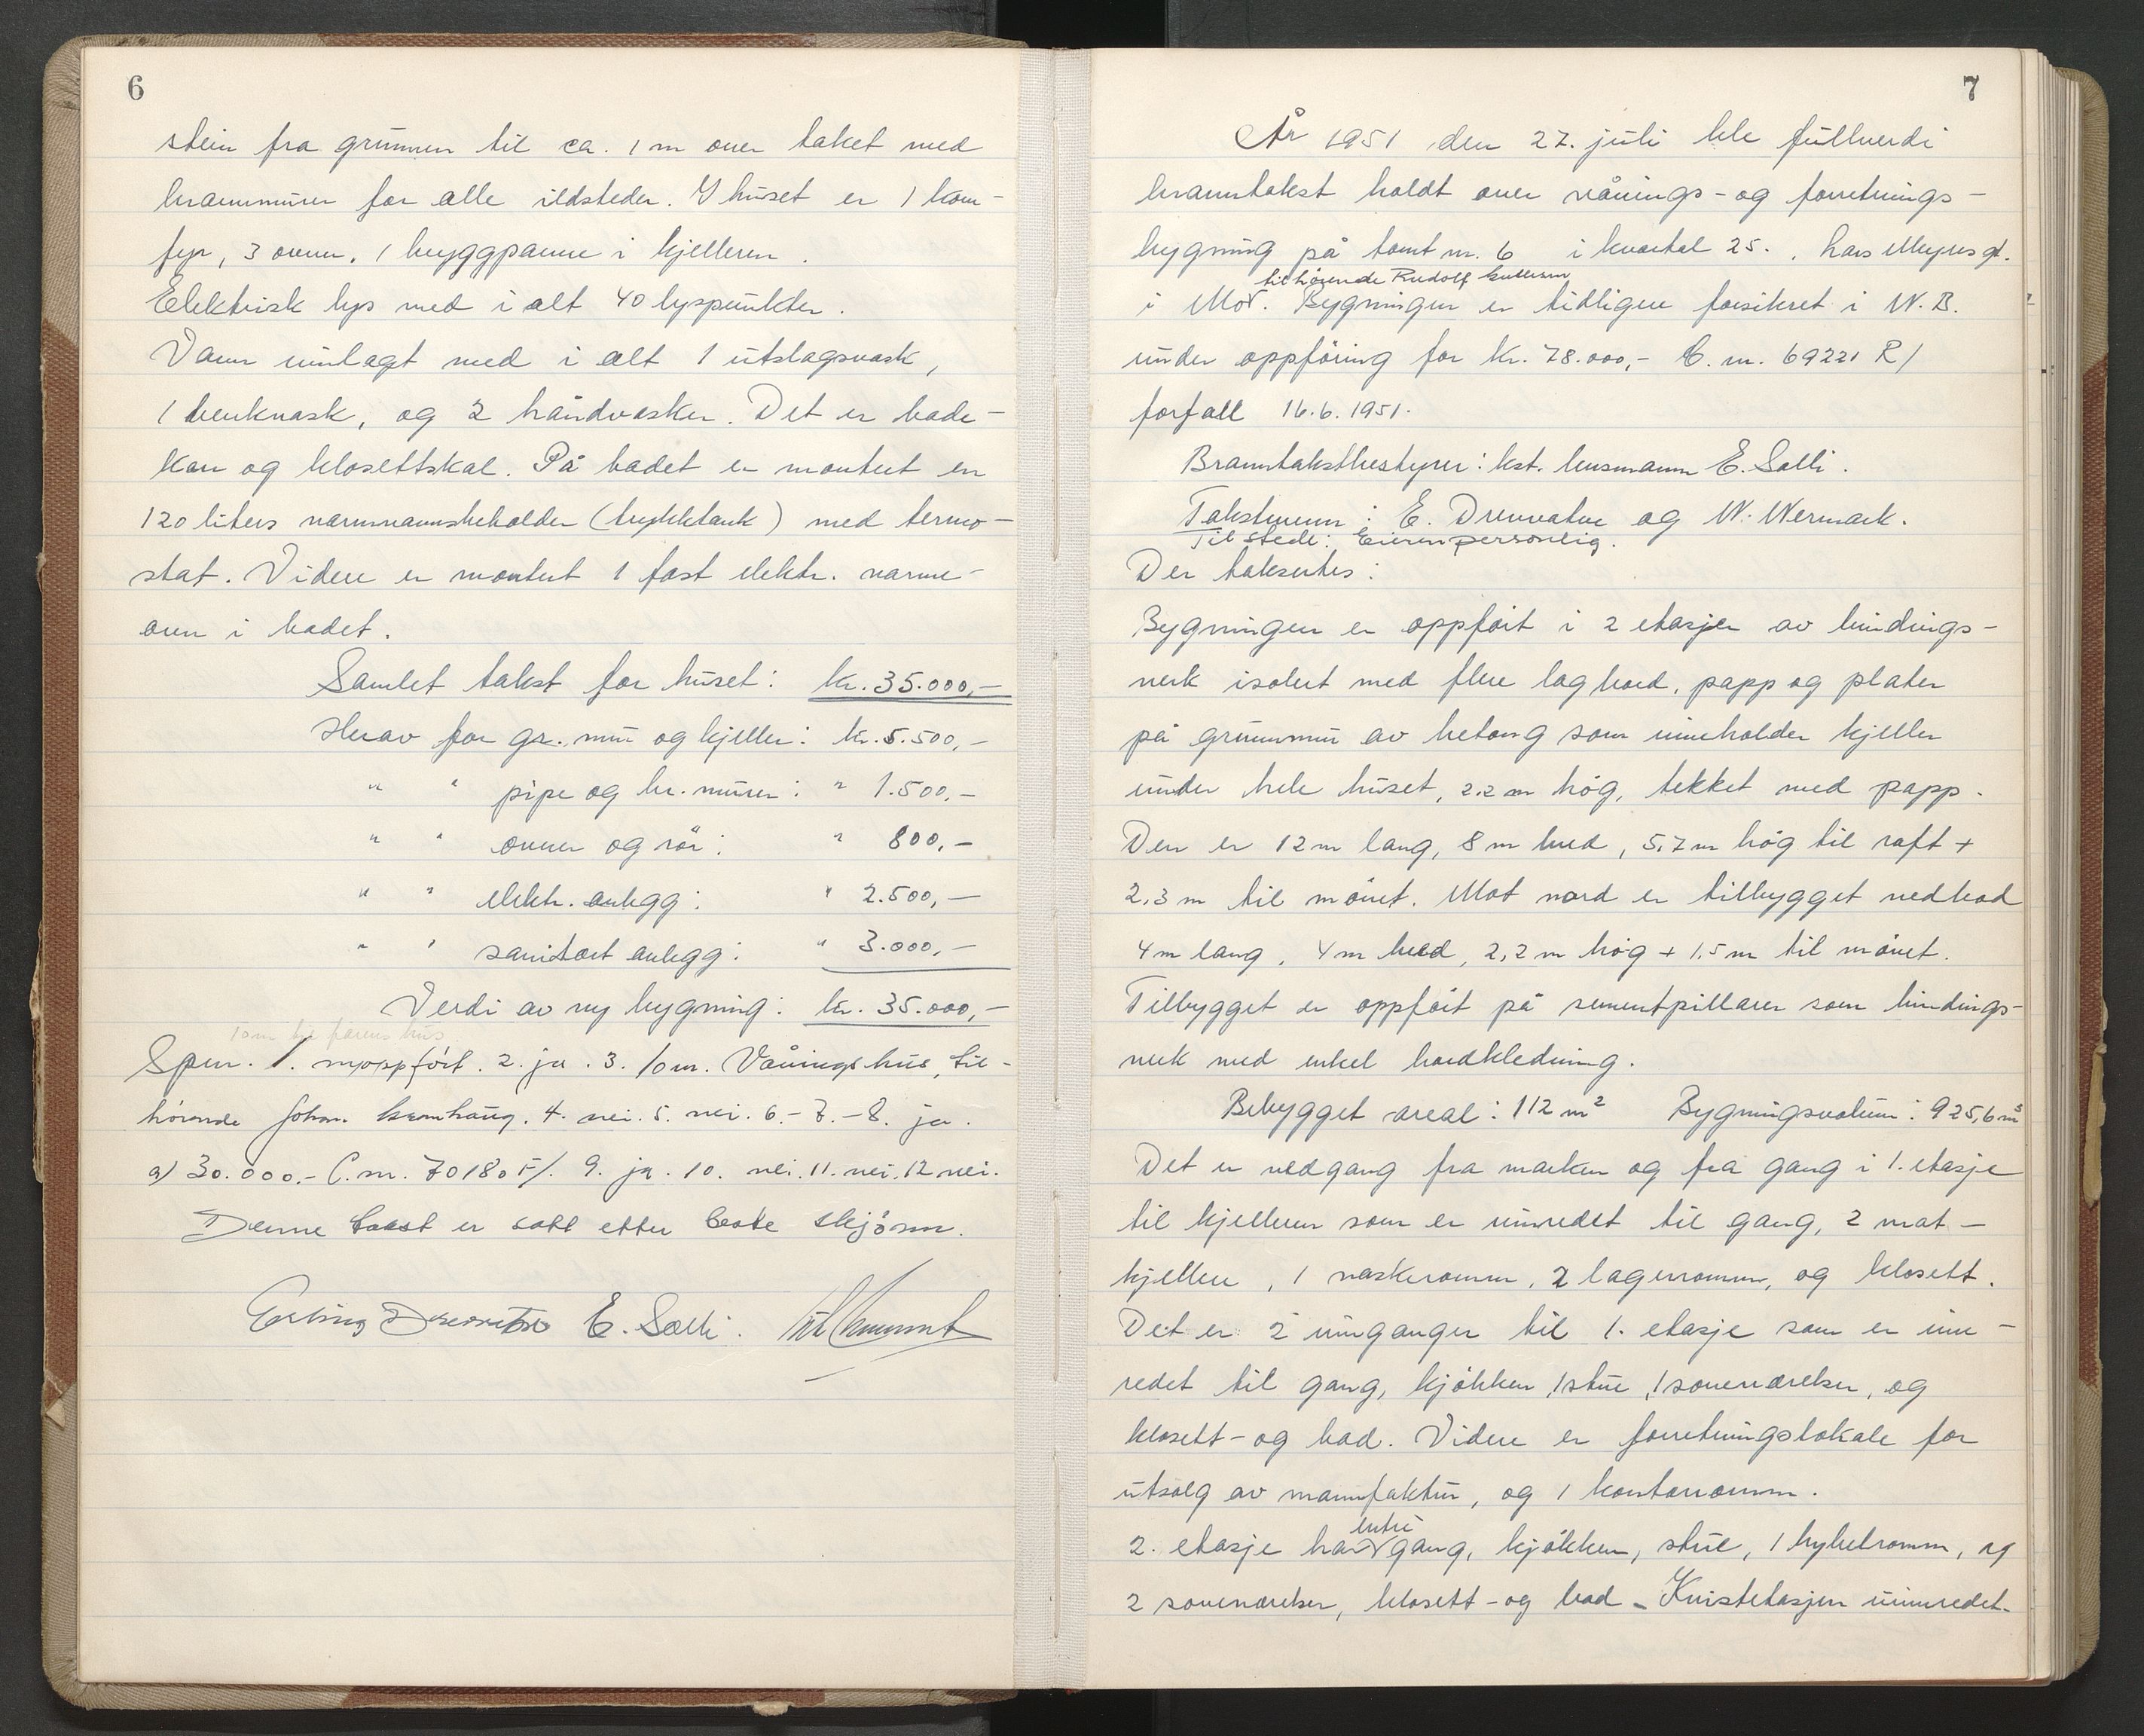 6
stein fra grunnen til ca. 1 m over taket med
brannmurer for alle ildsteder. I huset er 1 kom-
fyr, 3 ovner, 1 bryggpanne i kjelleren.
Elektrisk lys med i alt 40 lyspunkter.
Vann innlagt med i alt 1 utslagsvask,
1 benkvask, og 2 håndvasker. Det er bade-
kar og klosettskål. På badet er montert en
120 liters varmvannsbeholder (trykktank) med termo-
stat. Videre er montert 1 fast elektr. varme-
ovn i badet.
Samlet takst for huset: kr. 35.000,-
Herav for gr. mur og kjeller: kr. 5.500,-
" " pipe og br. murer: " 1.500,-
" " ovner og rör: " 800,-
" " elektr. anlegg: " 2.500,-
" " sanitært anlegg: " 3.000,-
Verdi av ny bygning: kr. 35.000,-
10 m fra farens hus
Spm. 1. nyoppfört. 2. ja. 3. 10 m. Våningshus, til-
hörende Johan. 4. nei. 5. nei. 6.-7.-8. ja.
a) 30.000.- C.nr. 70180 F/. 9. ja. 10. nei. 11. nei. 12 nei.
Denne takst er satt etter beste skjönn.
Erling Drevvatne E. Solli.
7
År 1951 den 27. juli ble fullverdi
branntakst holdt over vånings- og forretnings-
bygning på tomt nr. 6 i kvartal 25., Lars Meyers gt.
tilhörende Rudolf
i Mo. Bygningen er tidligere forsikret i N.B.
under oppföring for kr. 78.000,- C. nr. 69221 R/
forfall 16.6.1951.
Branntakstbestyrer: kst. lensmann E. Solli.
Takstmenn: E. Drevvatne og W. Wermark.
Til stede: Eieren personlig.
Der takseres:
Bygningen er oppfört i 2 etasjer av bindings-
verk isolert med flere lag bord, papp og plater
på grunnmur av betong som inneholder kjeller
under hele huset, 2.2 m hög, tekket med papp.
Den er 12 m lang, 8 m bred, 5,7 m hög til raft +
2,3 m til mönet. Mot nord er tilbygget vedbod
4 m lang, 4 m bred, 2,2 m hög + 1,5 m til mönet.
Tilbygget er oppfört på sementpillarer som bindings-
verk med enkel bordkledning.
Bebygget areal: 112 m² Bygningsvolum: 925,6 m³
Det er nedgang fra marken og fra gang i 1. etasje
til kjelleren som er innredet til gang, 2 mat-
kjellere, 1 vaskeromm, 2 lagerromm, og klosett.
Det er 2 innganger til 1. etasje som er inn-
redet til gang, kjökken, 1 stue, 1 soveværelser, og
klosett- og bad. Videre er forretningslokale for
utsalg av manufaktur, og 1 kontorromm.
entré
2. etasje har gang, kjökken, stue, 1 hybelromm, og
2 soveværelser, klosett- og bad - Kvistetasjen uinnredet.